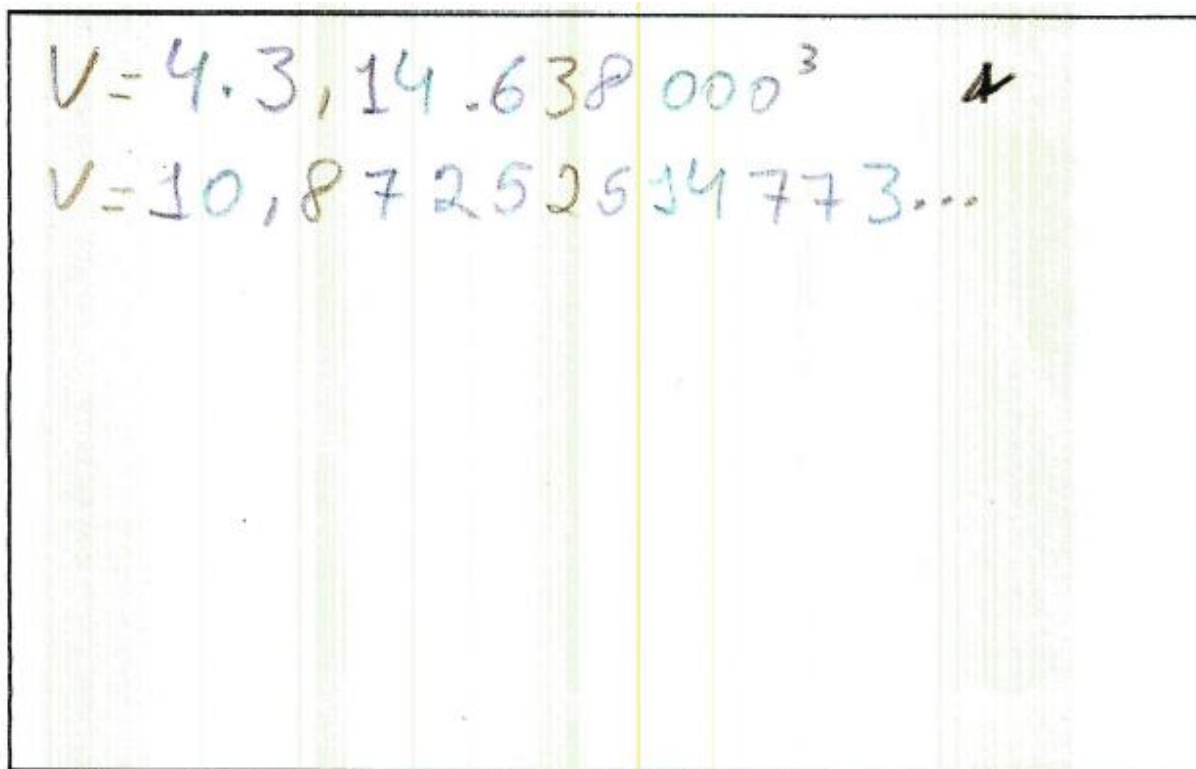 V=4.3,14.638 000³
V=10,87252514773...